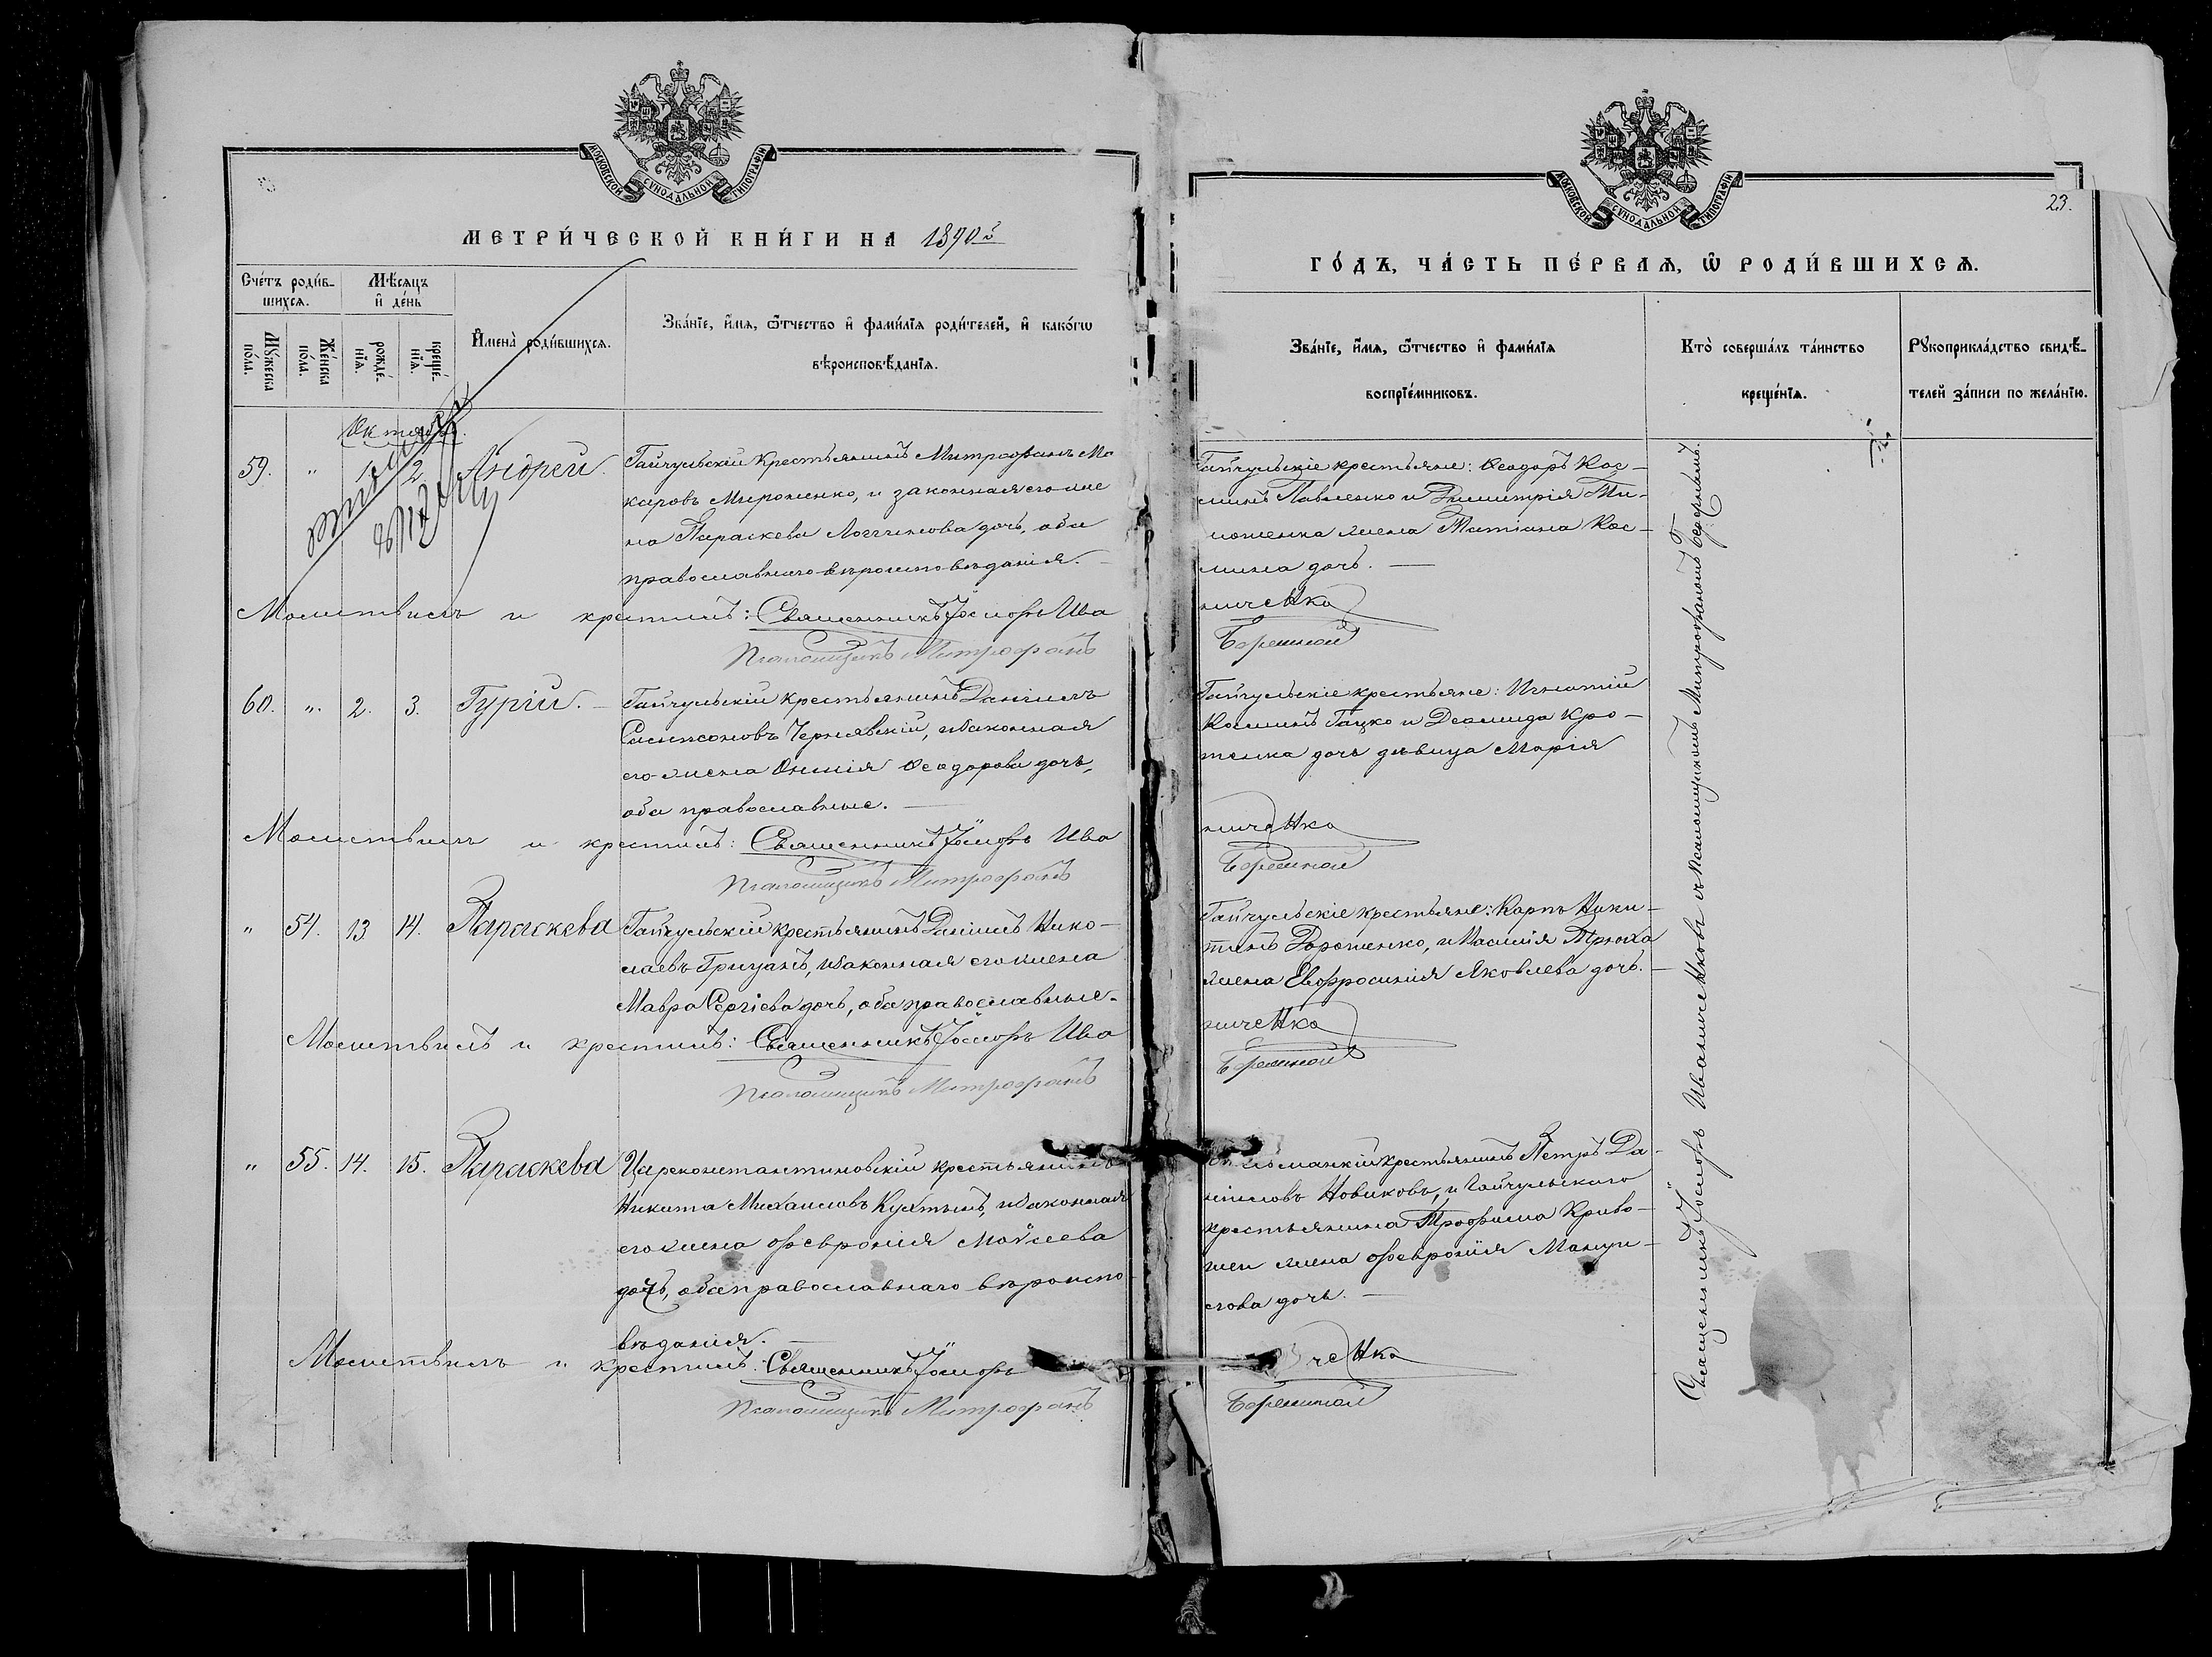 МОСКОВСКОЙ СѴНОДАЛЬНОЙ ТИПОГРАФІИ
МЕТРИ́ЧЕСКОЙ КНИ́ГИ НА 1890 й
Сче́тъ роди́в-
шихсѧ.
Мѣ́сѧцъ
и҆ де́нь
Мꙋ́жеска по́ла.
Же́нска по́ла.
рожде́-нїѧ.
креще́-нїѧ.
И҆мена̀ роди́вшихсѧ.
Зва́нїе, и҆́мѧ, ѻ҆́тчество и҆ фами́лїѧ роди́телей, и҆ како́гѡ
вѣроисповѣ́данїѧ.
Октябрь.
59. " 1. 2. Андрей.
Гайчульскій крестьянинъ Митрофанъ Ма
каровъ Мироненко, и законная его жe
на Параскева Логгинова дочь, оба
православнаго вѣроисповѣданія.
Молитвилъ и крестилъ: Священникъ Іосифъ Ива
Псаломщикъ Митрофанъ
60. ". 2. 3. Гурій. Гайчульскій крестьянинъ Даніилъ
Сампсоновъ Чернявскій, и законная
его жена Ѳеодорова дочь,
оба православные.
Молитвилъ и крестилъ: Священникъ Іосифъ Ива
Псаломщикъ Митрофанъ
" 54. 13 14. Параскева Гайчульскій крестьянинъ Даніилъ Нико-
лаевъ Грицанъ, и законная его жена
Мавра Сергіева дочь, оба православные.
Молитвилъ и крестилъ: Священникъ Іосифъ Ива
Псаломщикъ Митрофанъ
" 55. 14. 15. Параскева Цареконстантиновскій крестьянинъ
Никита Михаиловъ Кухтынъ, и законная
его жена Февронія Моѵсеева
дочь, оба православнаго вѣроиспо-
вѣданія.
Молитвилъ и крестилъ: Священникъ Іосифъ
Псаломщикъ Митрофанъ
МОСКОВСКОЙ СѴНОДАЛЬНОЙ ТИПОГРАФІИ
23.
ГО́ДЪ, ЧА́СТЬ ПЕ́РВАѦ, Ѽ РОДИ́ВШИХСѦ.
Зва́нїе, и҆́мѧ, ѻ҆́тчество и҆ фами́лїѧ
воспрїе́мниковъ.
Кто̀ соверша́лъ та́инство
креще́нїѧ.
Рꙋкоприкла́дство свидѣ́-
телей за́писи по жела́нїю.
Гайчульскіе крестьяне: Ѳеодоръ Кос-
минъ Павленко и Димитрія Ти-
мошенка жена Татіана Кос-
мина дочь.
ниченко
Бережной
Гайчульскіе крестьяне: Игнатій
Косминъ Гацко и Деомида Кро-
тенка дочь дѣвица Марія
ниченко
Бережной
Гайчульскіе крестьяне: Карпъ Ники-
тинъ Дорошенко, и Василія Трюха
жена Евфросинія Яковлева дочь.
ниченко
Бережной
крестьянинъ Петръ Да-
ніиловъ Новиковъ, и Гайчульскаго
крестьянина Трофима Криво-
шеи жена Февронія Мануи-
лова дочь.
ченко
Бережной
Священникъ Іосифъ Иваниченковъ съ Псаломщикомъ Митрофаномъ Бережнымъ.